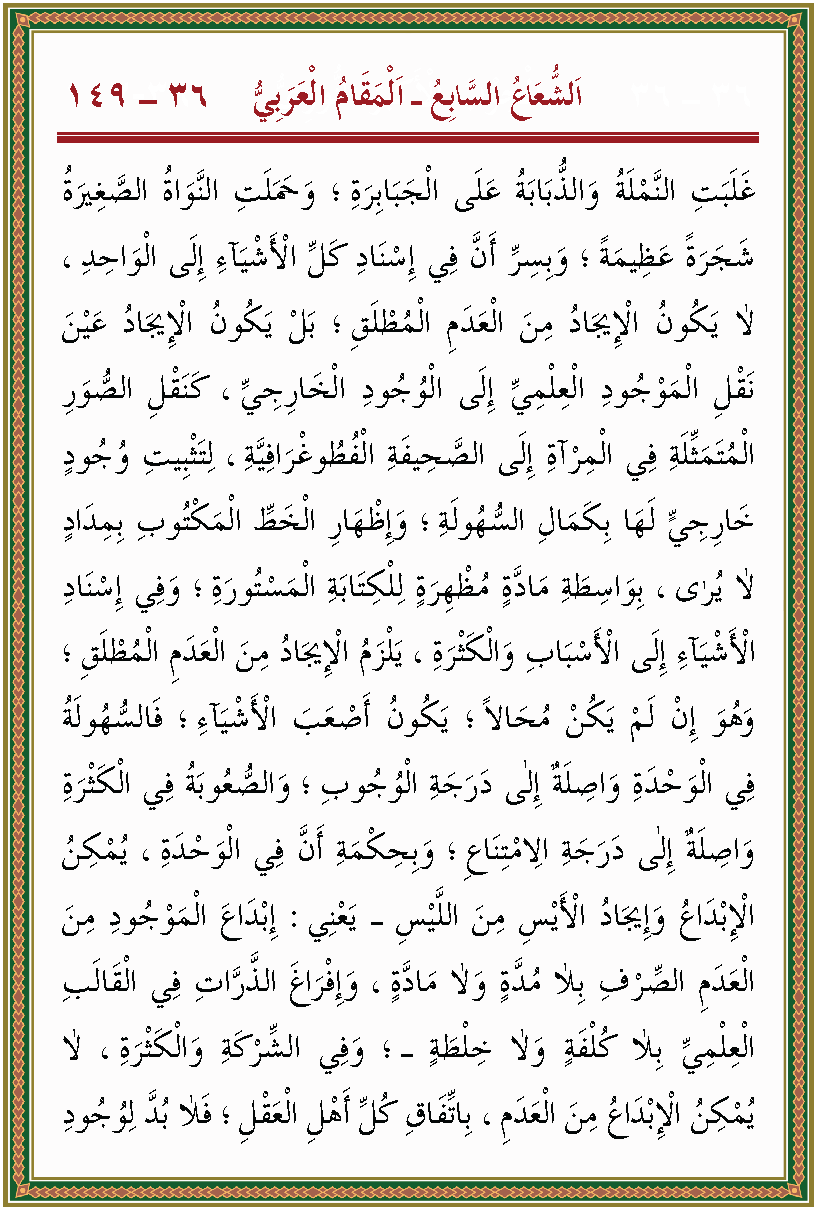 اَلشُّعَاعُ السَّابِعُ ـ اَلْمَقَامُ الْعَرَبِيُّ ٣٦ ـ ١٤٩
غَلَبَتِ النَّمْلَةُ وَالذُّبَابَةُ عَلَى الْجَبَابِرَةِ ؛ وَحَمَلَتِ النَّوَاةُ الصَّغِيرَةُ
شَجَرَةً عَظِيمَةً ؛ وَبِسِرِّ أَنَّ فِي إِسْنَادِ كَلِّ الْأَشْيَآءِ إِلَى الْوَاحِدِ ،
لاٰ يَكُونُ الْإِيجَادُ مِنَ الْعَدَمِ الْمُطْلَقِ ؛ بَلْ يَكُونُ الْإِيجَادُ عَيْنَ
نَقْلِ الْمَوْجُودِ الْعِلْمِيِّ إِلَى الْوُجُودِ الْخَارِجِيِّ ، كَنَقْلِ الصُّوَرِ
الْمُتَمَثِّلَةِ فِي الْمِرْآةِ إِلَى الصَّحِيفَةِ الْفُطُوغْرَافِيَّةِ ، لِتَثْبِيتِ وُجُودٍ
خَارِجِيٍّ لَهَا بِكَمَالِ السُّهُولَةِ ؛ وَإِظْهَارِ الْخَطِّ الْمَكْتُوبِ بِمِدَادٍ
لاٰ يُرٰى ، بِوَاسِطَةِ مَادَّةٍ مُظْهِرَةٍ لِلْكِتَابَةِ الْمَسْتُورَةِ ؛ وَفِي إِسْنَادِ
الْأَشْيَآءِ إِلَى الْأَسْبَابِ وَالْكَثْرَةِ ، يَلْزَمُ الْإِيجَادُ مِنَ الْعَدَمِ الْمُطْلَقِ ؛
وَهُوَ إِنْ لَمْ يَكُنْ مُحَالاً ؛ يَكُونُ أَصْعَبَ الْأَشْيَآءِ ؛ فَالسُّهُولَةُ
فِي الْوَحْدَةِ وَاصِلَةٌ إِلٰى دَرَجَةِ الْوُجُوبِ ؛ وَالصُّعُوبَةُ فِي الْكَثْرَةِ
وَاصِلَةٌ إِلٰى دَرَجَةِ الِامْتِنَاعِ ؛ وَبِحِكْمَةِ أَنَّ فِي الْوَحْدَةِ ، يُمْكِنُ
الْإِبْدَاعُ وَإِيجَادُ الْأَيْسِ مِنَ اللَّيْسِ ـ يَعْنِي : إِبْدَاعَ الْمَوْجُودِ مِنَ
الْعَدَمِ الصِّرْفِ بِلاٰ مُدَّةٍ وَلاٰ مَادَّةٍ ، وَإِفْرَاغَ الذَّرَّاتِ فِي الْقَالَبِ
الْعِلْمِيِّ بِلاٰ كُلْفَةٍ وَلاٰ خِلْطَةٍ ـ ؛ وَفِي الشِّرْكَةِ وَالْكَثْرَةِ ، لاٰ
يُمْكِنُ الْإِبْدَاعُ مِنَ الْعَدَمِ ، بِاتِّفَاقِ كُلِّ أَهْلِ الْعَقْلِ ؛ فَلاٰ بُدَّ لِوُجُودِ